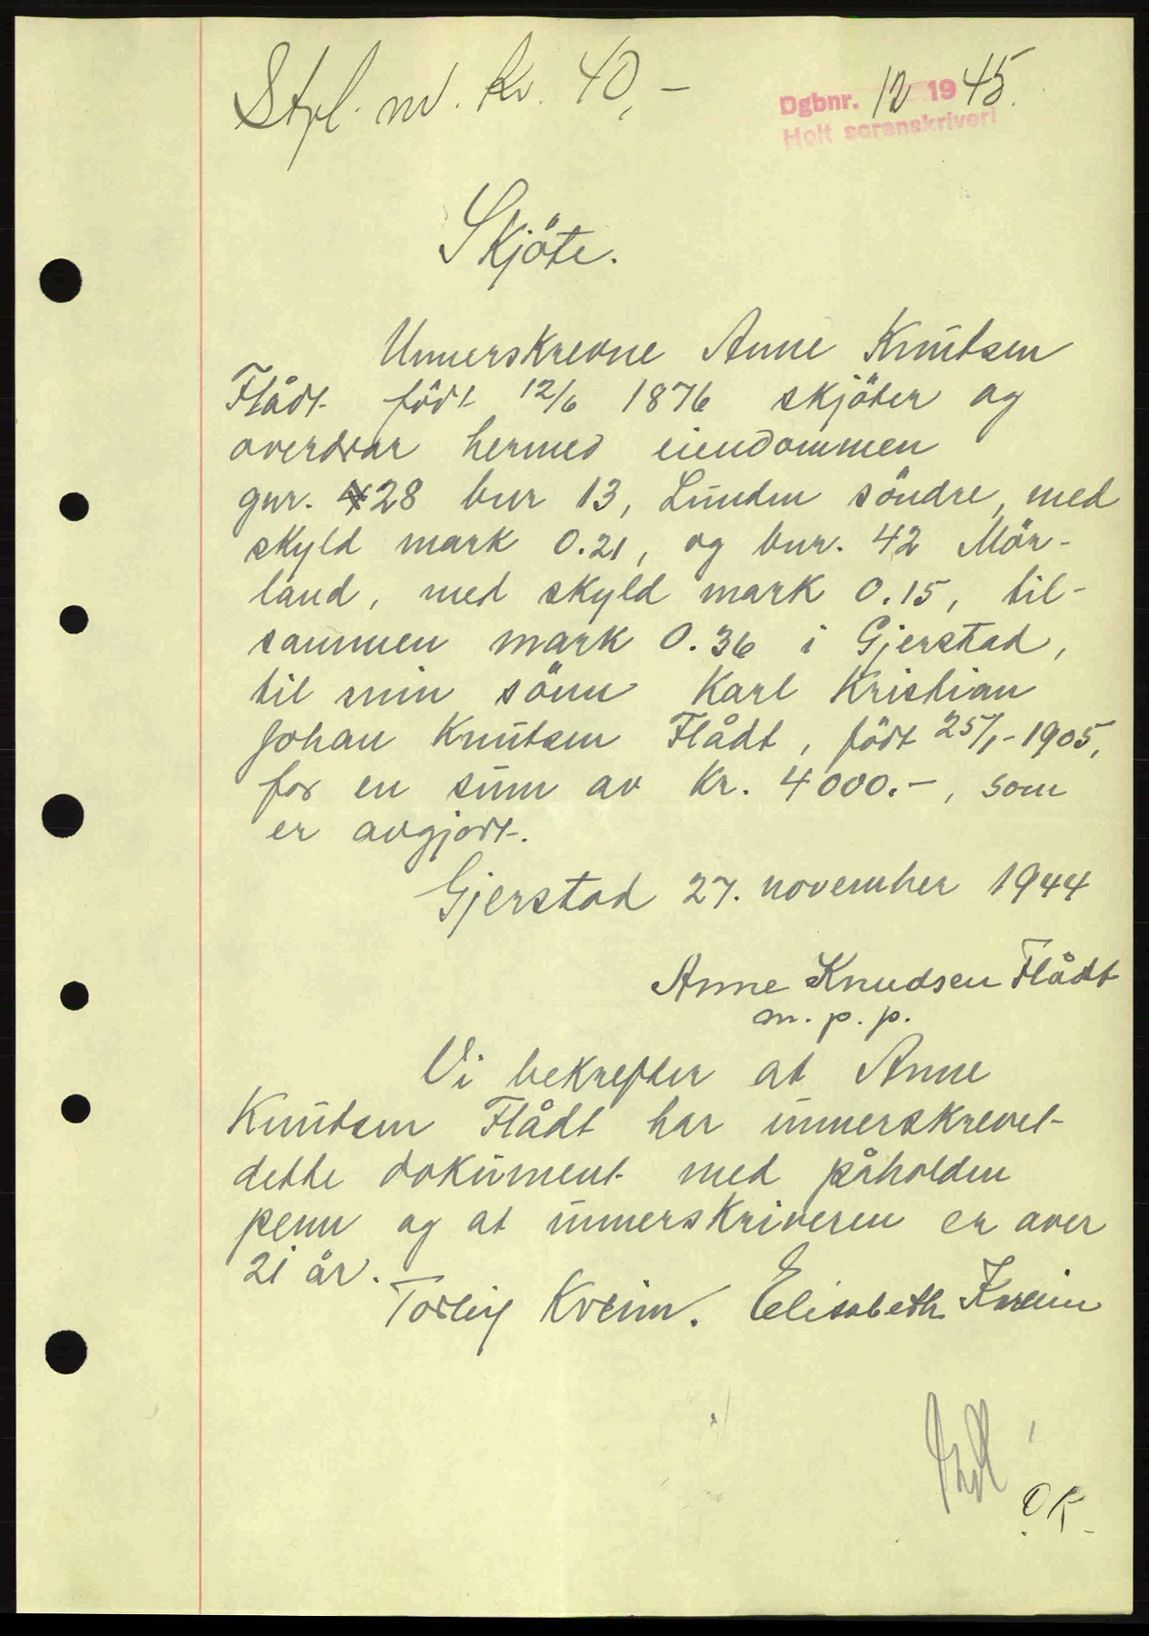 Stpl. md. Kr. 40,-
Dgbnr. 12 1945.
Holt sorenskriveri
Skjöte.
Unnerskrevne Anne Knutsen
Flådt född 12/6 1876 skjöter og
overdrar hermed eiendommen
gnr. 28 bnr 13, Lunden söndre, med
skyld mark 0.21, og bnr. 42 Mör-
land, med skyld mark 0.15, til-
sammen mark 0.36 i Gjerstad,
til min sönn Karl Kristian
Johan Knutsen Flådt, födt 25/1-1905,
for en sum av kr. 4000.-, som
er avgjort.
Gjerstad 27. november 1944
Anne Knudsen Flådt
m. p. p.
Vi bekrefter at Anne
Knutsen Flådt har unnerskrevet
dette dokument med påholden
penn og at unnerskriveren er over
21 år.
Torleif Kveim. Elisabeth Kveim
OK.